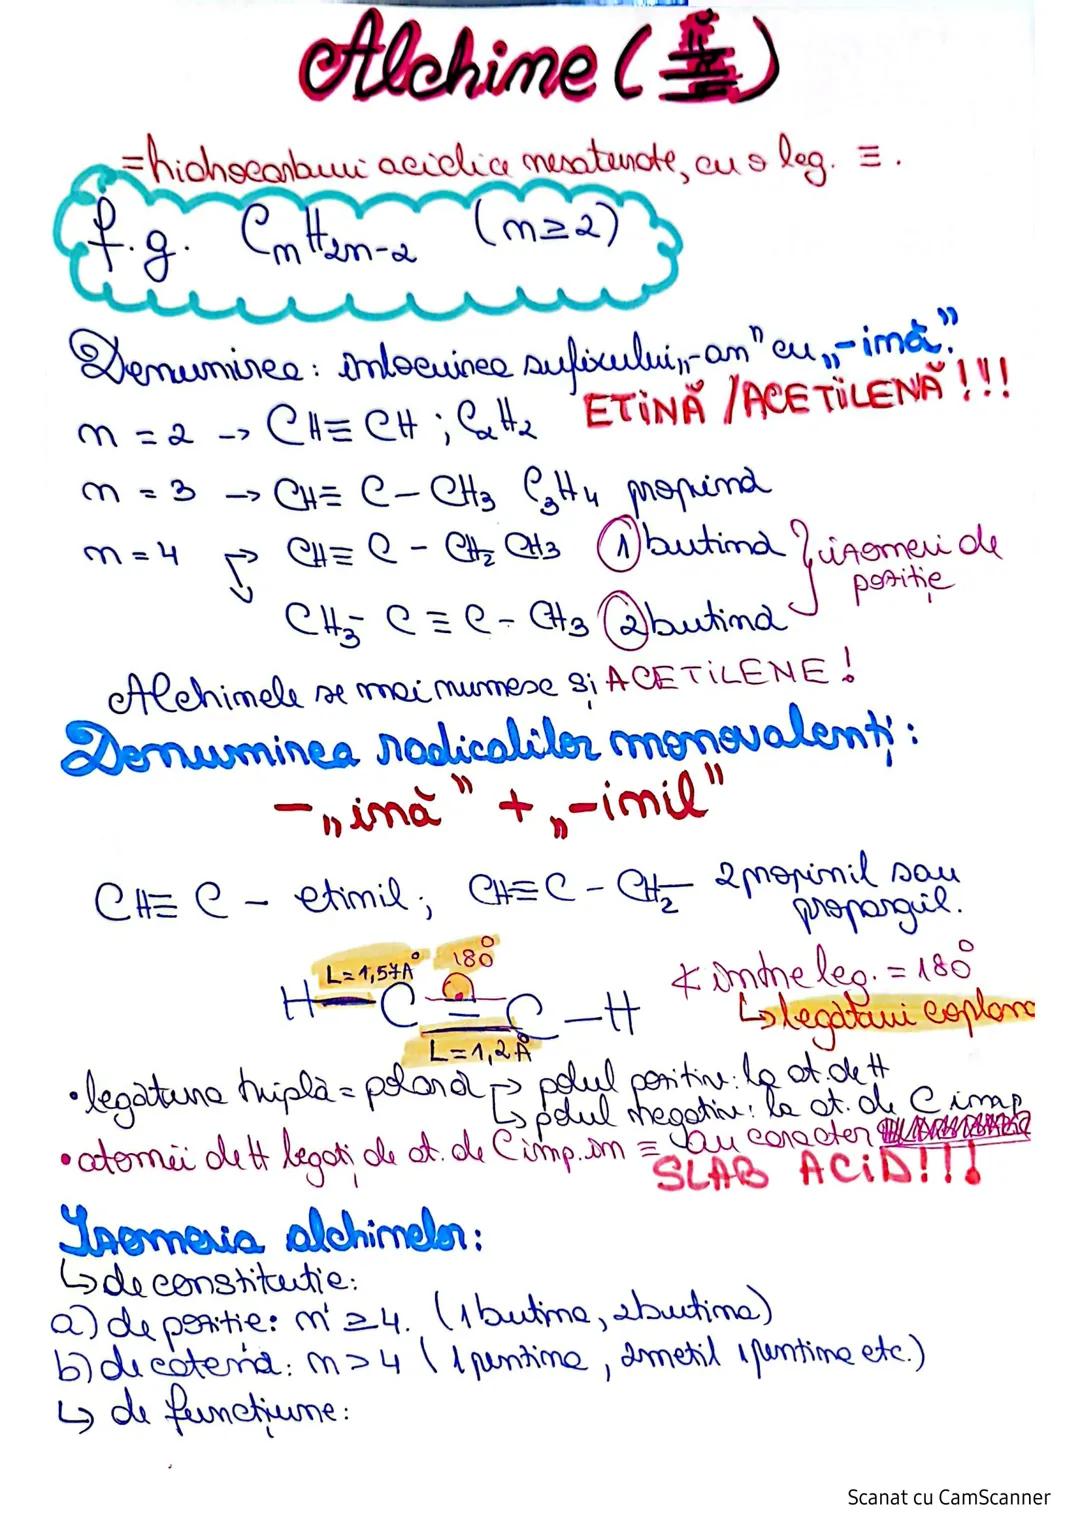 Alchine (≡)
=hidrocarburi aciclice nesaturate, cu o leg. ≡.
f.g. CnH2n-2 (n≥2)
Denumirea: înlocuirea sufixului „-an" cu „-ină."
ETINĂ /ACETILENĂ!!!
n = 2 -> CH≡CH ; C2H2
n = 3 -> CH≡ C-CH3 C3H4 propină
n=4 -> CH≡ C - CH2 CH3 1 butină } izomeri de
poziție
-> CH3- C ≡ C - CH3 2butină
Alchinele se mai numesc și ACETILENE!
Denumirea radicalilor monovalenți:
-„ină" + „-inil"
CH≡ C - etinil; CH≡C - CH2- 2propinil sau
propargil.
L=1,57Å 180°
H-C≡C-H
L=1,2Å
∢ între leg. = 180°
↳legături coplana
•legătura triplă = polară -> polul pozitiv: la at. de H
↳ polul negativ: la at. de C imp
•atomii de H legați de at. de C imp. în ≡ au caracter
SLAB ACID!!!
Izomeria alchinelor:
↳de constitutie:
a) de pozitie: n ≥4. (1butina, 2butina)
b) de catenă: n>4 (1 pentina, 2metil 1pentina etc.)
↳ de funcțiune:
Scanat cu CamScanner